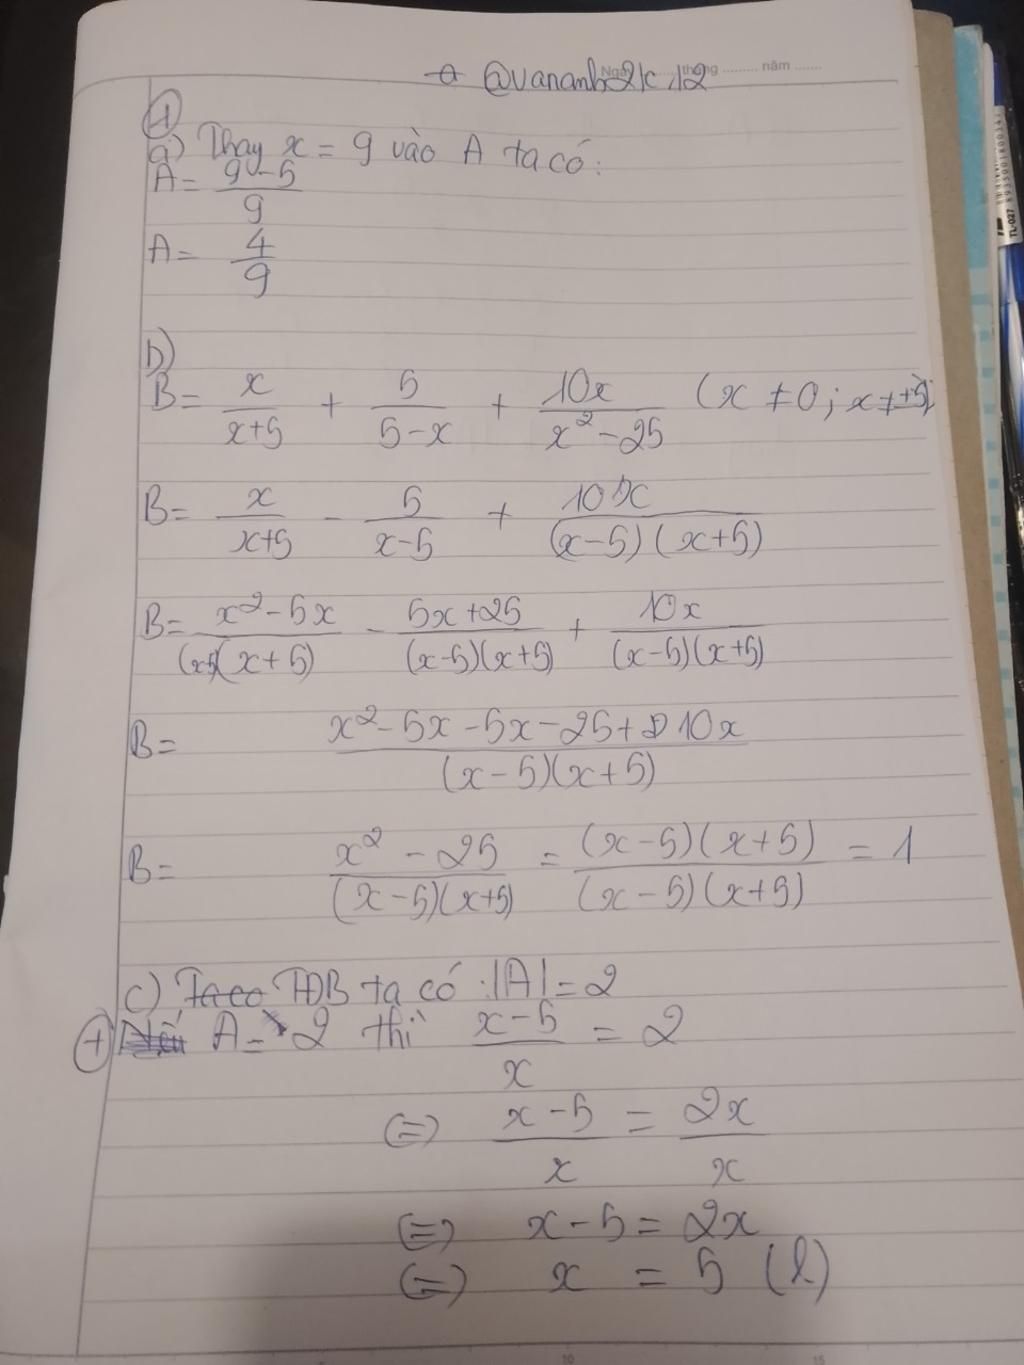 @vananh2k12
Ngày tháng ........ năm ......
1
a) Thay x = 9 vào A ta có:
A = (9-5)/9
A = 4/9
b)
B = x/(x+5) + 5/(5-x) + 10x/(x²-25) (x ≠ 0; x ≠ ±5)
B = x/(x+5) - 5/(x-5) + 10x/((x-5)(x+5))
B = (x²-5x)/((x-5)(x+5)) - (5x+25)/((x-5)(x+5)) + 10x/((x-5)(x+5))
B = (x²-5x-5x-25+10x)/((x-5)(x+5))
B = (x²-25)/((x-5)(x+5)) = ((x-5)(x+5))/((x-5)(x+5)) = 1
c) TĐB ta có: |A| = 2
+ A = 2 thì (x-5)/x = 2
(=) (x-5)/x = 2x/x
(=) x-5 = 2x
(=) x = 5 (l)
TL-027
10 15